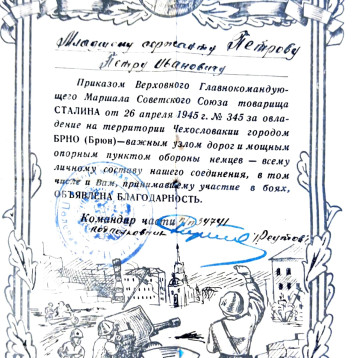 Младшему сержанту Петрову
Петру Ивановичу
Приказом Верховного Главнокомандую-
щего Маршала Советского Союза товарища
СТАЛИНА от 26 апреля 1945 г. № 345 за овла-
дение на территории Чехословакии городом
БРНО (Брюн)—важным узлом дорог и мощным
опорным пунктом обороны немцев — всему
личному составу нашего соединения, в том
числе и Вам, принимавшему участие в боях,
ОБЪЯВЛЕНА БЛАГОДАРНОСТЬ.
Командир части
подполковник